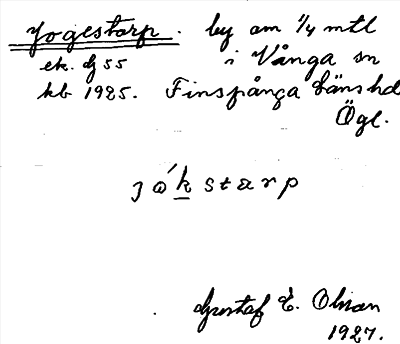 Jogestorp. by om 1/4 mtl
ek. bl 55 i Vånga sn
kb 1925. Finspånga läns hd
Ögl.
jo´kstarp
Gustaf E. Olsson
1927.